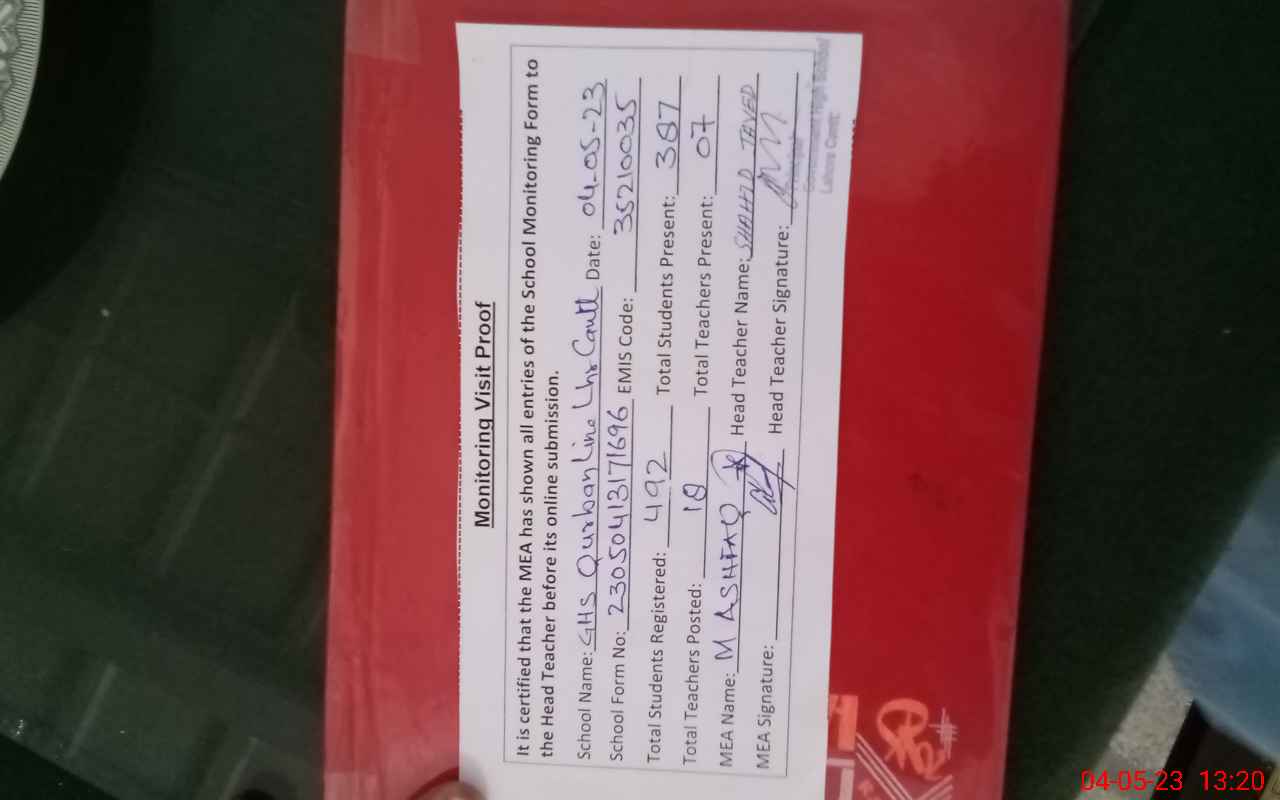 Monitoring Visit Proof
It is certified that the MEA has shown all entries of the School Monitoring Form to
the Head Teacher before its online submission.
School Name: GHS Qurban Line Lhr Cantt Date: 04-05-23
School Form No: 23050413171696 EMIS Code: 35210035
Total Students Registered: 492 Total Students Present: 387
Total Teachers Posted: 18 Total Teachers Present: 07
MEA Name: M ASHFAQ Head Teacher Name: SHAHID JAVED
MEA Signature: Head Teacher Signature:
Principal
Government High School
Lahore Cantt:
04-05-23 13:20